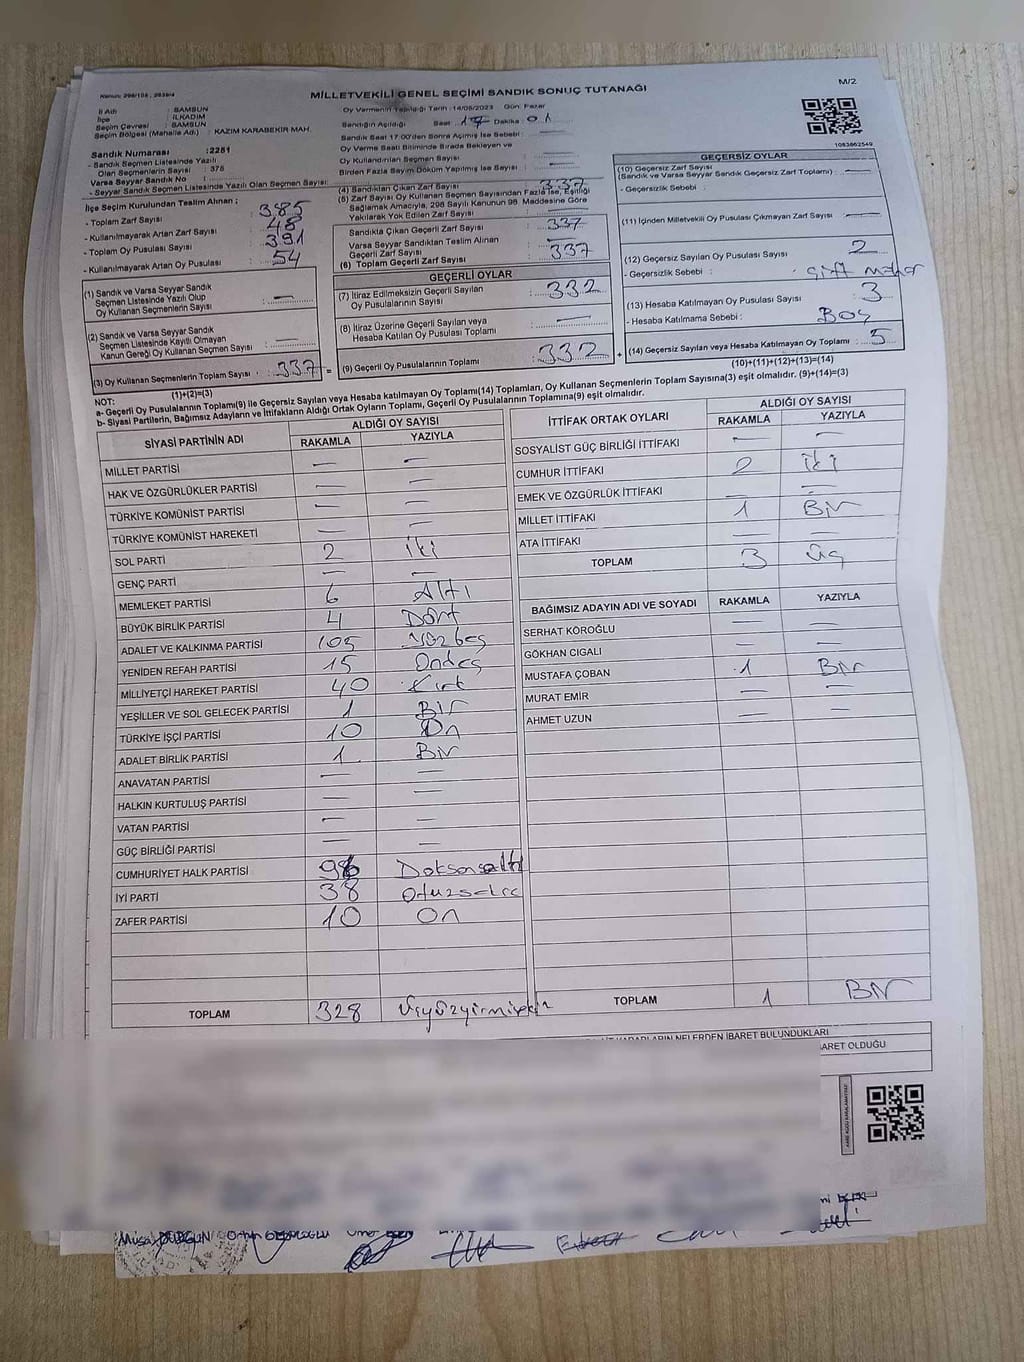 M/2
Kanun: 298/105, 2839/4
MİLLETVEKİLİ GENEL SEÇİMİ SANDIK SONUÇ TUTANAĞI
İl Adı : SAMSUN
İlçe : İLKADIM
Seçim Çevresi : SAMSUN
Seçim Bölgesi (Mahalle Adı) : KAZIM KARABEKİR MAH.
Sandık Numarası : 2251
- Sandık Seçmen Listesinde Yazılı
Olan Seçmenlerin Sayısı : 378
Varsa Seyyar Sandık No :
- Seyyar Sandık Seçmen Listesinde Yazılı Olan Seçmen Sayısı:
İlçe Seçim Kurulundan Teslim Alınan ;
- Toplam Zarf Sayısı : 385
- Kullanılmayarak Artan Zarf Sayısı : 48
- Toplam Oy Pusulası Sayısı : 391
- Kullanılmayarak Artan Oy Pusulası : 54
(1) Sandık ve Varsa Seyyar Sandık
Seçmen Listesinde Yazılı Olup
Oy Kullanan Seçmenlerin Sayısı : —
(2) Sandık ve Varsa Seyyar Sandık
Seçmen Listesinde Kayıtlı Olmayan
Kanun Gereği Oy Kullanan Seçmen Sayısı : —
(3) Oy Kullanan Seçmenlerin Toplam Sayısı : 337
(1)+(2)=(3)
Oy Vermenin Yapıldığı Tarih : 14/05/2023 Gün: Pazar
Sandığın Açıldığı Saat : 17 Dakika : 01
Sandık Saat 17:00'den Sonra Açılmış İse Sebebi : —
Oy Verme Saati Bitiminde Sırada Bekleyen ve
Oy Kullandırılan Seçmen Sayısı : —
Birden Fazla Sayım Döküm Yapılmış İse Sayısı : —
(4) Sandıktan Çıkan Zarf Sayısı : 337
(5) Zarf Sayısı Oy Kullanan Seçmen Sayısından Fazla İse, Eşitliği
Sağlamak Amacıyla, 298 Sayılı Kanunun 98. Maddesine Göre
Yakılarak Yok Edilen Zarf Sayısı : —
Sandıkta Çıkan Geçerli Zarf Sayısı : 337
Varsa Seyyar Sandıktan Teslim Alınan
Geçerli Zarf Sayısı : —
(6) Toplam Geçerli Zarf Sayısı : 337
GEÇERLİ OYLAR
(7) İtiraz Edilmeksizin Geçerli Sayılan
Oy Pusulalarının Sayısı : 332
(8) İtiraz Üzerine Geçerli Sayılan veya
Hesaba Katılan Oy Pusulası Toplamı : —
(9) Geçerli Oy Pusulalarının Toplamı : 332
1083862549
GEÇERSİZ OYLAR
(10) Geçersiz Zarf Sayısı
(Sandık ve Varsa Seyyar Sandık Geçersiz Zarf Toplamı) : —
- Geçersizlik Sebebi :
(11) İçinden Milletvekili Oy Pusulası Çıkmayan Zarf Sayısı : —
(12) Geçersiz Sayılan Oy Pusulası Sayısı : 2
- Geçersizlik Sebebi : Çift mühür
(13) Hesaba Katılmayan Oy Pusulası Sayısı : 3
- Hesaba Katılmama Sebebi : Boş
(14) Geçersiz Sayılan veya Hesaba Katılmayan Oy Toplamı : 5
(10)+(11)+(12)+(13)=(14)
NOT:
a- Geçerli Oy Pusulalarının Toplamı(9) ile Geçersiz Sayılan veya Hesaba katılmayan Oy Toplamı(14) Toplamları, Oy Kullanan Seçmenlerin Toplam Sayısına(3) eşit olmalıdır. (9)+(14)=(3)
b- Siyasi Partilerin, Bağımsız Adayların ve İttifakların Aldığı Ortak Oyların Toplamı, Geçerli Oy Pusulalarının Toplamına(9) eşit olmalıdır.
SİYASİ PARTİNİN ADI ALDIĞI OY SAYISI
RAKAMLA YAZIYLA
MİLLET PARTİSİ — —
HAK VE ÖZGÜRLÜKLER PARTİSİ — —
TÜRKİYE KOMÜNİST PARTİSİ — —
TÜRKİYE KOMÜNİST HAREKETİ — —
SOL PARTİ 2 iki
GENÇ PARTİ — —
MEMLEKET PARTİSİ 6 Altı
BÜYÜK BİRLİK PARTİSİ 4 Dört
ADALET VE KALKINMA PARTİSİ 105 Yüzbeş
YENİDEN REFAH PARTİSİ 15 Onbeş
MİLLİYETÇİ HAREKET PARTİSİ 40 Kırk
YEŞİLLER VE SOL GELECEK PARTİSİ 1 Bir
TÜRKİYE İŞÇİ PARTİSİ 10 On
ADALET BİRLİK PARTİSİ 1 Bir
ANAVATAN PARTİSİ — —
HALKIN KURTULUŞ PARTİSİ — —
VATAN PARTİSİ — —
GÜÇ BİRLİĞİ PARTİSİ — —
CUMHURİYET HALK PARTİSİ 96 Doksanaltı
İYİ PARTİ 38 Otuzsekiz
ZAFER PARTİSİ 10 On
TOPLAM 328
İTTİFAK ORTAK OYLARI ALDIĞI OY SAYISI
RAKAMLA YAZIYLA
SOSYALİST GÜÇ BİRLİĞİ İTTİFAKI — —
CUMHUR İTTİFAKI 2 iki
EMEK VE ÖZGÜRLÜK İTTİFAKI — —
MİLLET İTTİFAKI 1 Bir
ATA İTTİFAKI — —
TOPLAM 3 Üç
BAĞIMSIZ ADAYIN ADI VE SOYADI RAKAMLA YAZIYLA
SERHAT KÖROĞLU — —
GÖKHAN CIGALI — —
MUSTAFA ÇOBAN 1 Bir
MURAT EMİR — —
AHMET UZUN — —
TOPLAM 1 Bir
KARARLARIN NELERDEN İBARET BULUNDUKLARI
BARET OLDUĞU